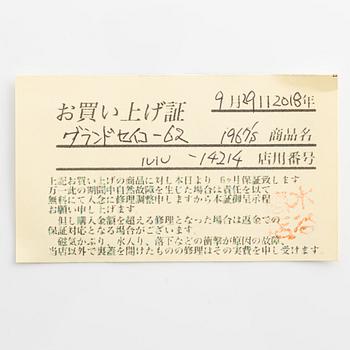 9月29日2018年
お買い上げ証
グランドセイコー62 1967/5 商品名
-14214 店用番号
上記お買い上げの商品に対し本日より 6ヶ月保証致します
万一此の期間中自然故障を生じた場合は責任を以て
無料にて入念に修理調整申しますから本証御呈示程
お願い申し上げます
但し購入金額を超える修理となった場合は返金での
保証対応となる場合がございます。
磁気かぶり、水入り、落下などの衝撃が原因の故障、
当店以外で裏蓋を開けたものの修理はその実費を申し受けます。